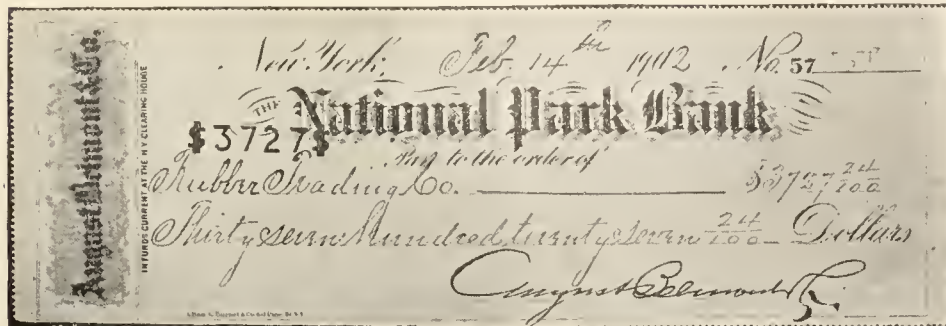 August Belmont & Co.
IN FUNDS CURRENT AT THE N.Y. CLEARING HOUSE
New York, Feb. 14th 1902 No. 57
THE National Park Bank
$3727$
Pay to the order of
Rubber Trading Co. $3727 24/100
Thirty seven hundred twenty seven 24/100 Dollars
August Belmont